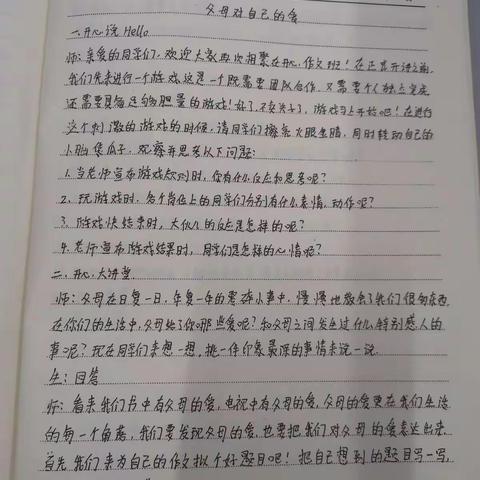 父母对自己的爱
一.开心说 Hello
师:亲爱的同学们,欢迎大家再次相聚在开心作文班!在正式开讲之前,
我们先来进行一个游戏,这是一个既需要团队合作,又需要个人独立完成
还需要具备足够胆量的游戏!好了,不卖关子了,游戏马上开始吧!在进行
这个刺激的游戏的时候,请同学们擦亮火眼金睛,同时转动自己的
小脑袋瓜子,观察并思考以下问题:
1.当老师宣布游戏规则时,你有什么反应和思考呢?
2.玩游戏时,各个岗位上的同学们分别有什么表情、动作呢?
3.游戏快结束时,大伙儿的反应是怎样的呢?
4.老师宣布游戏结果时,同学们是怎样的心情呢?
二.开心大讲堂
师:父母在日复一日,年复一年的零碎小事中,慢慢地教会了我们很多东西
在你们的生活中,父母给了你哪些爱呢?和父母之间发生过什么特别感人的
事呢?现在同学们来想一想,挑一件印象最深的事情来说一说.
生:回答
师:看来我们书中有父母的爱,电视中有父母的爱,父母的爱更在我们生活
的每一个角落,我们要发现父母的爱,也要把我们对父母的爱表达出来.
首先我们来为自己的作文拟个好题目吧!把自己想到的题目写一写,